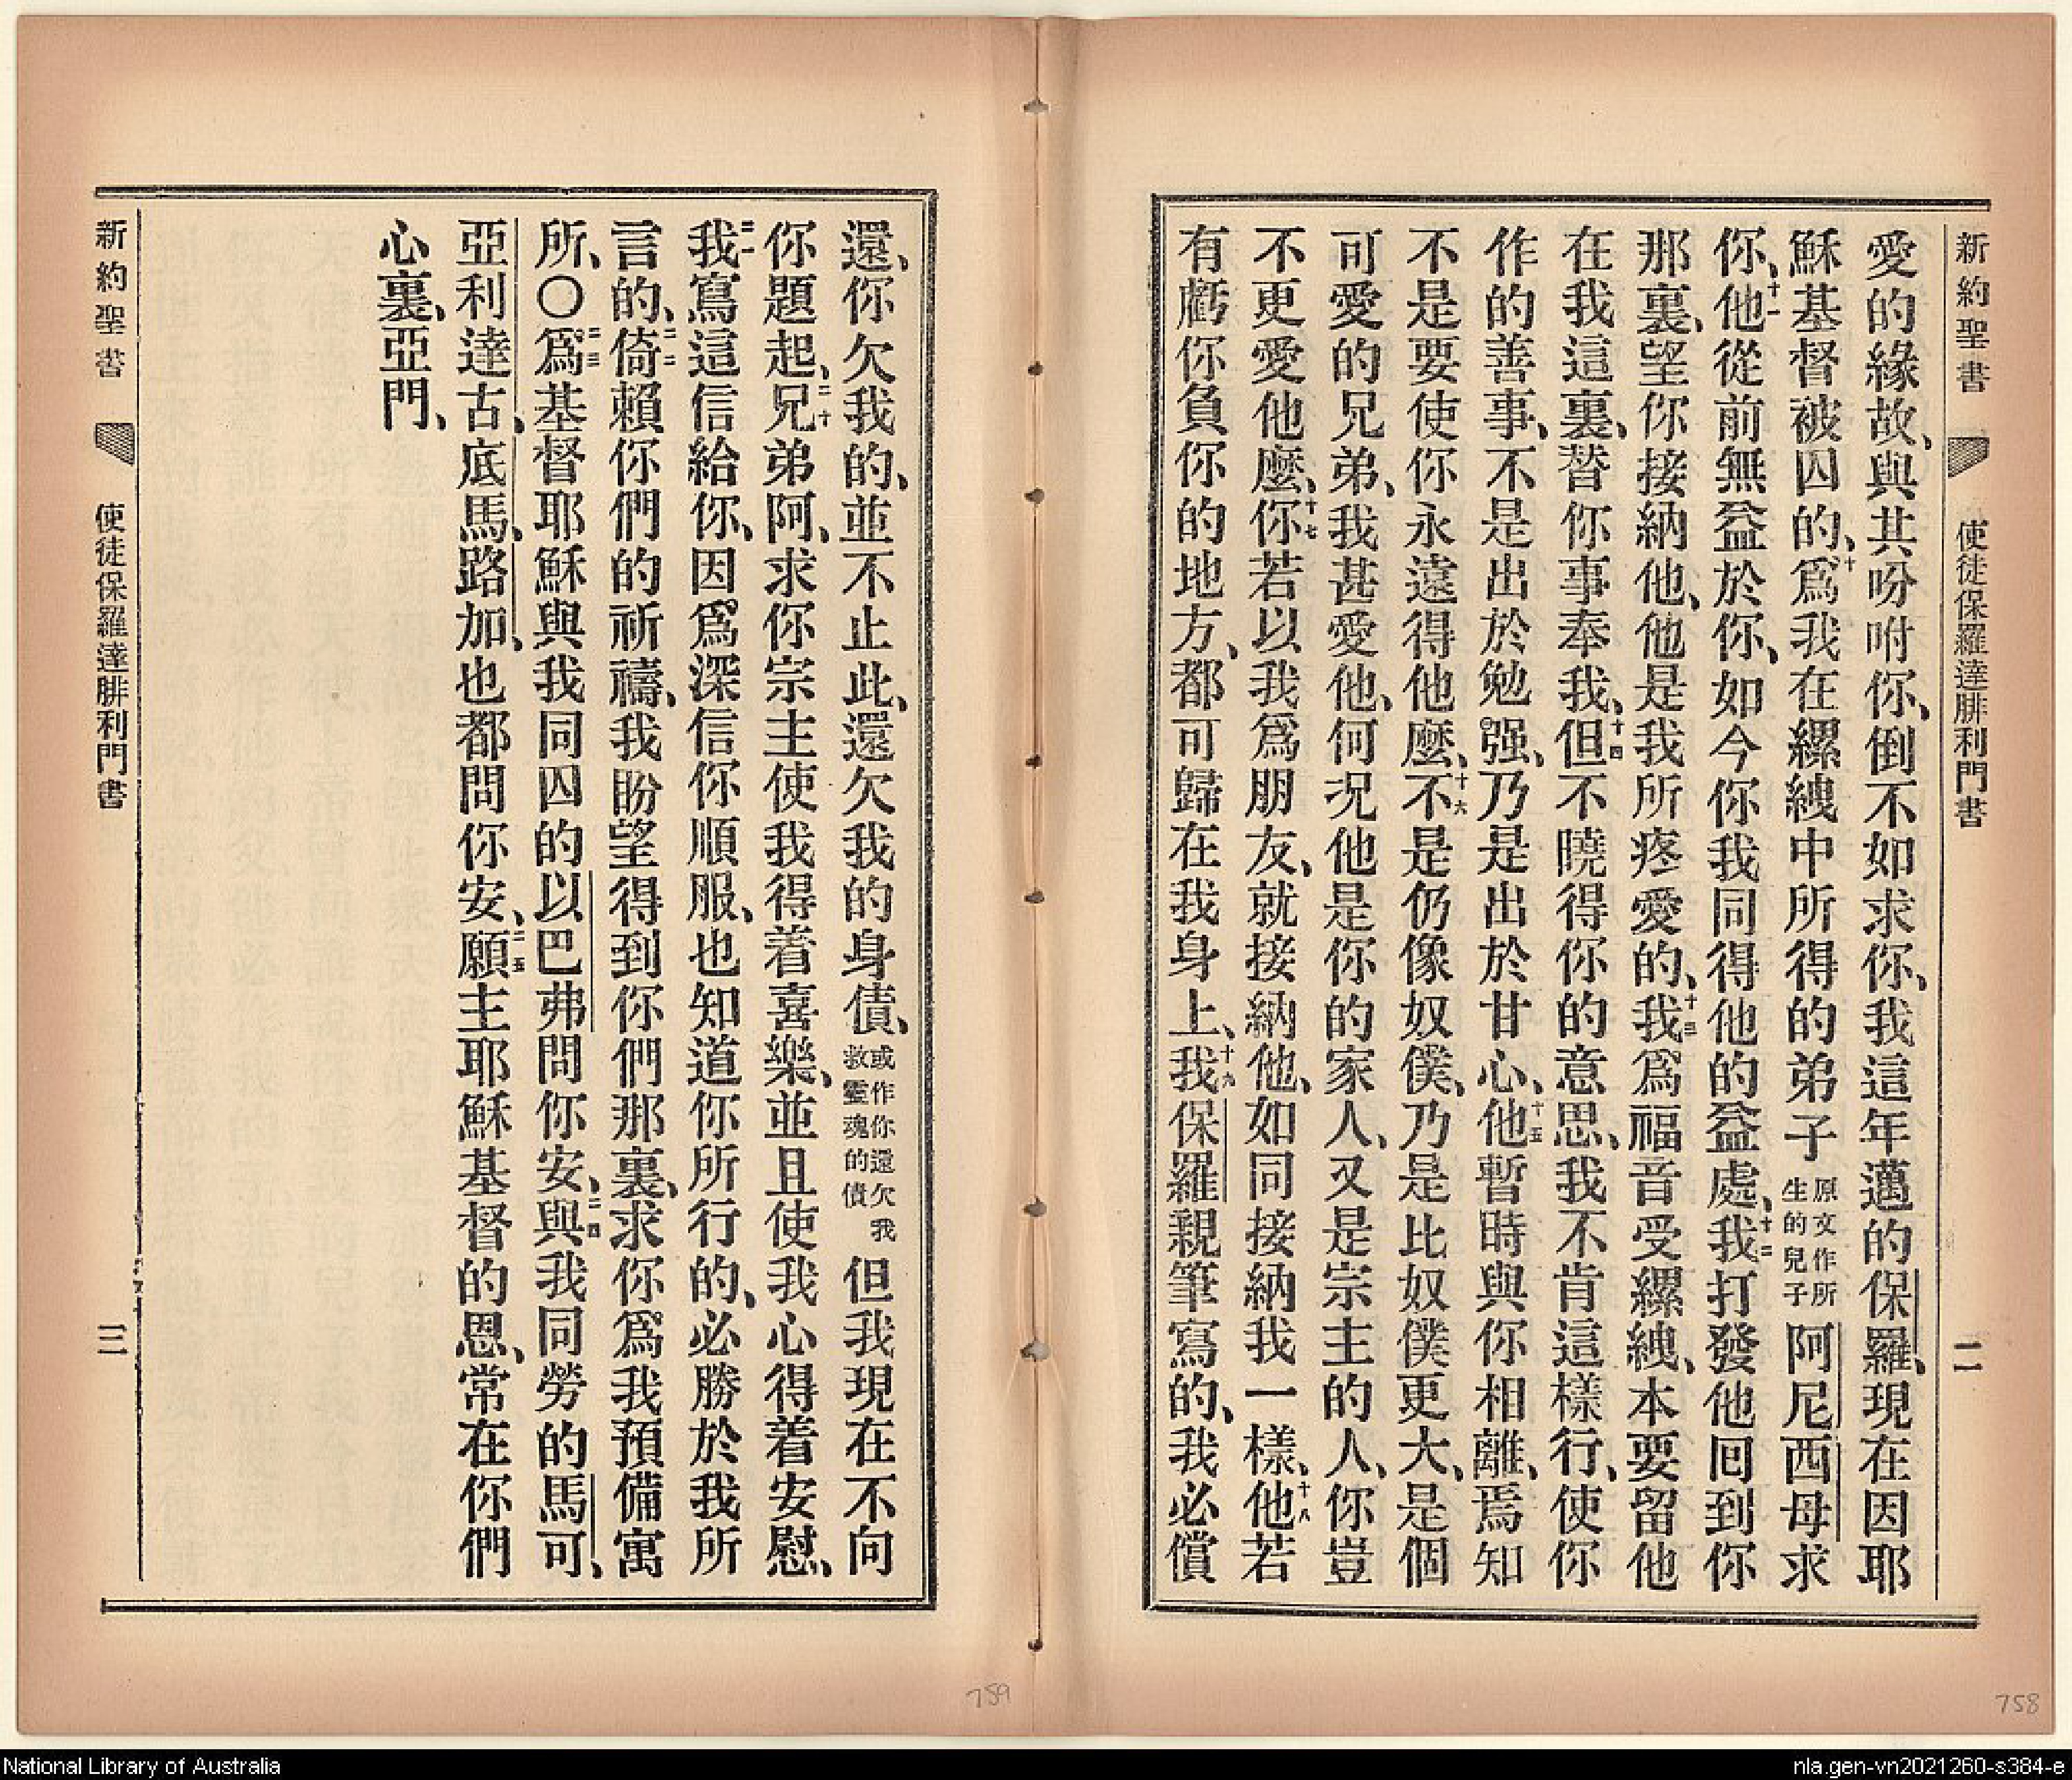 新約聖書 使徒保羅達腓利門書 二
愛的緣故、與其吩咐你、倒不如求你、我這年邁的保羅、現在因耶
穌基督被囚的、十爲我在縲絏中所得的弟子原文作所生的兒子阿尼西母求
你、十一他從前無益於你、如今你我同得他的益處、十二我打發他囘到你
那裏、望你接納他、他是我所疼愛的、十三我爲福音受縲絏、本要留他
在我這裏、替你事奉我、十四但不曉得你的意思、我不肯這樣行、使你
作的善事、不是出於勉强、乃是出於甘心、十五他暫時與你相離、焉知
不是要使你永遠得他麽、十六不是仍像奴僕、乃是比奴僕更大、是個
可愛的兄弟、我甚愛他、何况他是你的家人、又是宗主的人、你豈
不更愛他麽、十七你若以我爲朋友、就接納他、如同接納我一樣、十八他若
有虧你負你的地方、都可歸在我身上、十九我保羅親筆寫的、我必償
還、你欠我的、並不止此、還欠我的身債、或作你還欠我救靈魂的債但我現在不向
你題起、二十兄弟阿、求你宗主使我得着喜樂、並且使我心得着安慰、
二一我寫這信給你、因爲深信你順服、也知道你所行的、必勝於我所
言的、二二倚賴你們的祈禱、我盼望得到你們那裏、求你爲我預備寓
所、〇二三爲基督耶穌與我同囚的以巴弗問你安、二四與我同勞的馬可、
亞利達古、底馬、路加、也都問你安、二五願主耶穌基督的恩、常在你們
心裏、亞門、
新約聖書 使徒保羅達腓利門書 三
759
758
National Library of Australia
nla.gen-vn2021260-s384-e